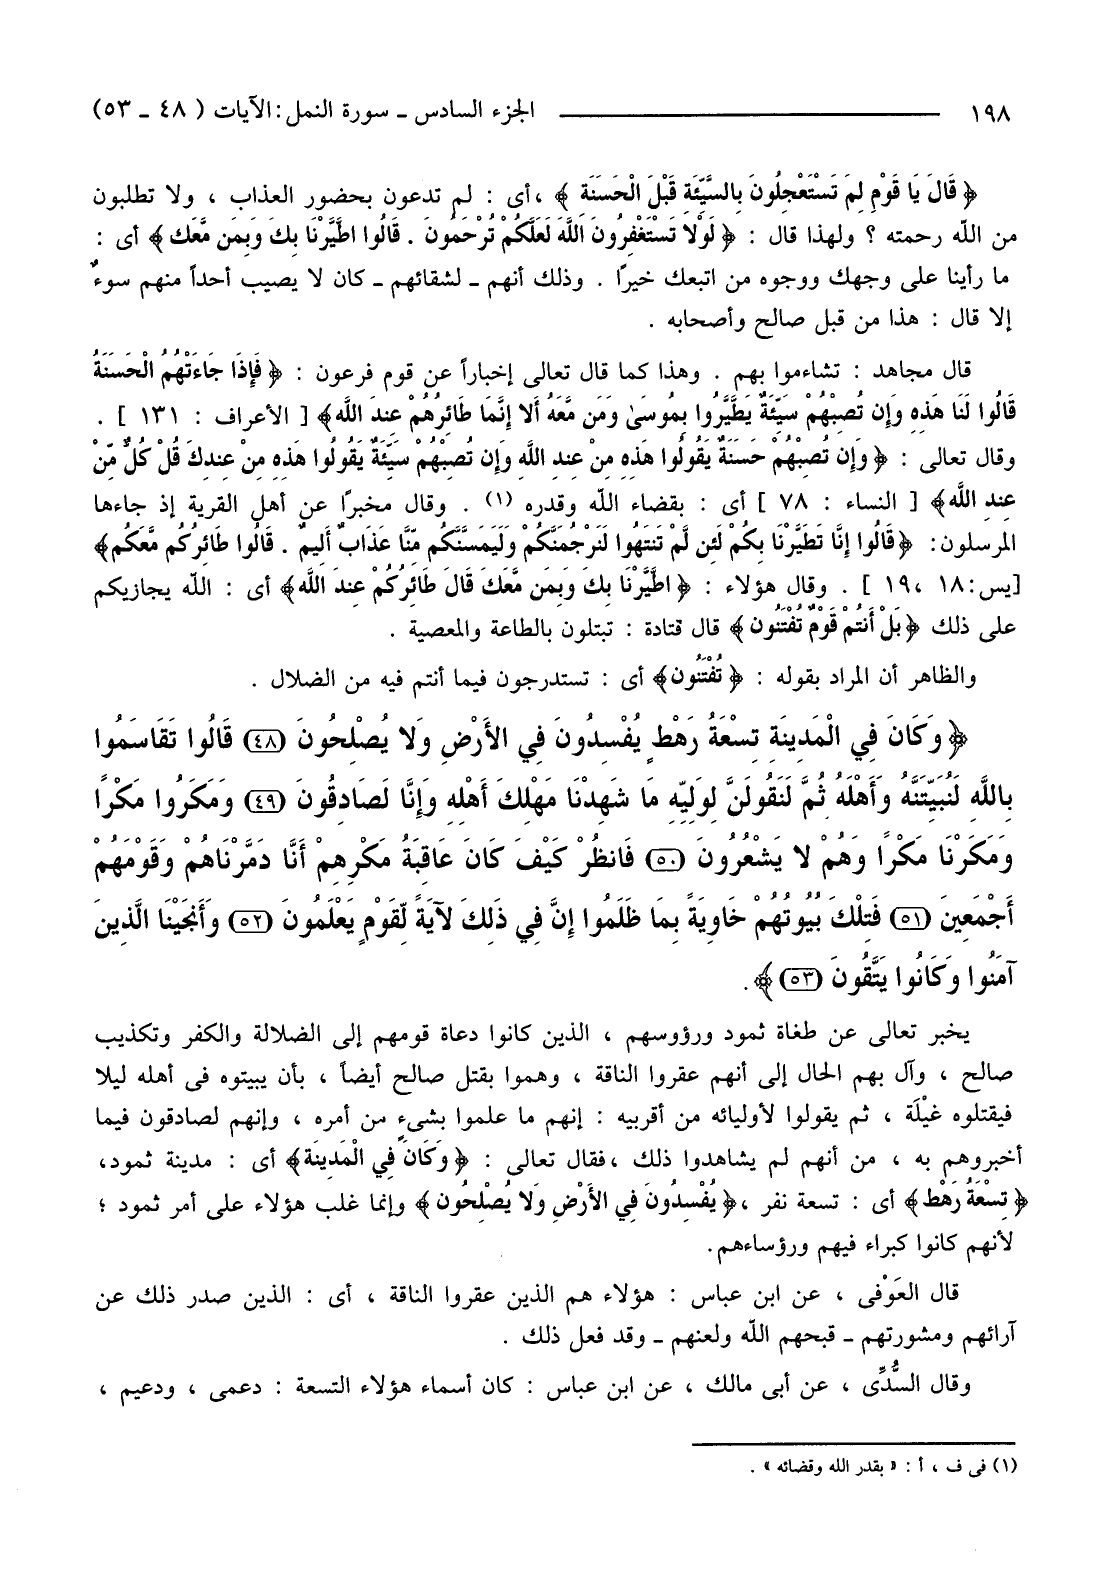 ١٩٨ الجزء السادس ـ سورة النمل : الآيات ( ٤٨ ـ ٥٣ )
﴿ قَالَ يَا قَوْمِ لِمَ تَسْتَعْجِلُونَ بِالسَّيِّئَةِ قَبْلَ الْحَسَنَةِ ﴾ ، أى : لم تدعون بحضور العذاب ، ولا تطلبون
من الله رحمته ؟ ولهذا قال : ﴿ لَوْلا تَسْتَغْفِرُونَ اللَّهَ لَعَلَّكُمْ تُرْحَمُونَ . قَالُوا اطَّيَّرْنَا بِكَ وَبِمَن مَّعَكَ ﴾ أى :
ما رأينا على وجهك ووجوه من اتبعك خيرًا . وذلك أنهم ـ لشقائهم ـ كان لا يصيب أحداً منهم سوءٌ
إلا قال : هذا من قبل صالح وأصحابه .
قال مجاهد : تشاءموا بهم . وهذا كما قال تعالى إخباراً عن قوم فرعون : ﴿ فَإِذَا جَاءَتْهُمُ الْحَسَنَةُ
قَالُوا لَنَا هَذِهِ وَإِن تُصِبْهُمْ سَيِّئَةٌ يَطَّيَّرُوا بِمُوسَىٰ وَمَن مَّعَهُ أَلا إِنَّمَا طَائِرُهُمْ عِندَ اللَّهِ ﴾ [ الأعراف : ١٣١ ] .
وقال تعالى : ﴿ وَإِن تُصِبْهُمْ حَسَنَةٌ يَقُولُوا هَذِهِ مِنْ عِندِ اللَّهِ وَإِن تُصِبْهُمْ سَيِّئَةٌ يَقُولُوا هَذِهِ مِنْ عِندِكَ قُلْ كُلٌّ مِّنْ
عِندِ اللَّهِ ﴾ [ النساء : ٧٨ ] أى : بقضاء الله وقدره (١) . وقال مخبرًا عن أهل القرية إذ جاءها
المرسلون : ﴿ قَالُوا إِنَّا تَطَيَّرْنَا بِكُمْ لَئِن لَّمْ تَنتَهُوا لَنَرْجُمَنَّكُمْ وَلَيَمَسَّنَّكُم مِّنَّا عَذَابٌ أَلِيمٌ . قَالُوا طَائِرُكُم مَّعَكُم ﴾
[يس : ١٨ ، ١٩ ] . وقال هؤلاء : ﴿ اطَّيَّرْنَا بِكَ وَبِمَن مَّعَكَ قَالَ طَائِرُكُمْ عِندَ اللَّهِ ﴾ أى : الله يجازيكم
على ذلك ﴿ بَلْ أَنتُمْ قَوْمٌ تُفْتَنُونَ ﴾ قال قتادة : تبتلون بالطاعة والمعصية .
والظاهر أن المراد بقوله : ﴿ تُفْتَنُونَ ﴾ أى : تستدرجون فيما أنتم فيه من الضلال .
﴿ وَكَانَ فِي الْمَدِينَةِ تِسْعَةُ رَهْطٍ يُفْسِدُونَ فِي الأَرْضِ وَلا يُصْلِحُونَ (٤٨) قَالُوا تَقَاسَمُوا
بِاللَّهِ لَنُبَيِّتَنَّهُ وَأَهْلَهُ ثُمَّ لَنَقُولَنَّ لِوَلِيِّهِ مَا شَهِدْنَا مَهْلِكَ أَهْلِهِ وَإِنَّا لَصَادِقُونَ (٤٩) وَمَكَرُوا مَكْرًا
وَمَكَرْنَا مَكْرًا وَهُمْ لا يَشْعُرُونَ (٥٠) فَانظُرْ كَيْفَ كَانَ عَاقِبَةُ مَكْرِهِمْ أَنَّا دَمَّرْنَاهُمْ وَقَوْمَهُمْ
أَجْمَعِينَ (٥١) فَتِلْكَ بُيُوتُهُمْ خَاوِيَةً بِمَا ظَلَمُوا إِنَّ فِي ذَلِكَ لآيَةً لِّقَوْمٍ يَعْلَمُونَ (٥٢) وَأَنجَيْنَا الَّذِينَ
آمَنُوا وَكَانُوا يَتَّقُونَ (٥٣) ﴾ .
يخبر تعالى عن طغاة ثمود ورؤوسهم ، الذين كانوا دعاة قومهم إلى الضلالة والكفر وتكذيب
صالح ، وآل بهم الحال إلى أنهم عقروا الناقة ، وهموا بقتل صالح أيضاً ، بأن يبيتوه فى أهله ليلا
فيقتلوه غيْلَة ، ثم يقولوا لأوليائه من أقربيه : إنهم ما علموا بشىءٍ من أمره ، وإنهم لصادقون فيما
أخبروهم به ، من أنهم لم يشاهدوا ذلك ، فقال تعالى : ﴿ وَكَانَ فِي الْمَدِينَةِ ﴾ أى : مدينة ثمود ،
﴿ تِسْعَةُ رَهْطٍ ﴾ أى : تسعة نفر ، ﴿ يُفْسِدُونَ فِي الأَرْضِ وَلا يُصْلِحُونَ ﴾ وإنما غلب هؤلاء على أمر ثمود ؛
لأنهم كانوا كبراء فيهم ورؤساءهم .
قال العَوْفى ، عن ابن عباس : هؤلاء هم الذين عقروا الناقة ، أى : الذين صدر ذلك عن
آرائهم ومشورتهم ـ قبحهم الله ولعنهم ـ وقد فعل ذلك .
وقال السُّدِّى ، عن أبى مالك ، عن ابن عباس : كان أسماء هؤلاء التسعة : دعمى ، ودعيم ،
(١) فى ف ، أ : « بقدر الله وقضائه » .